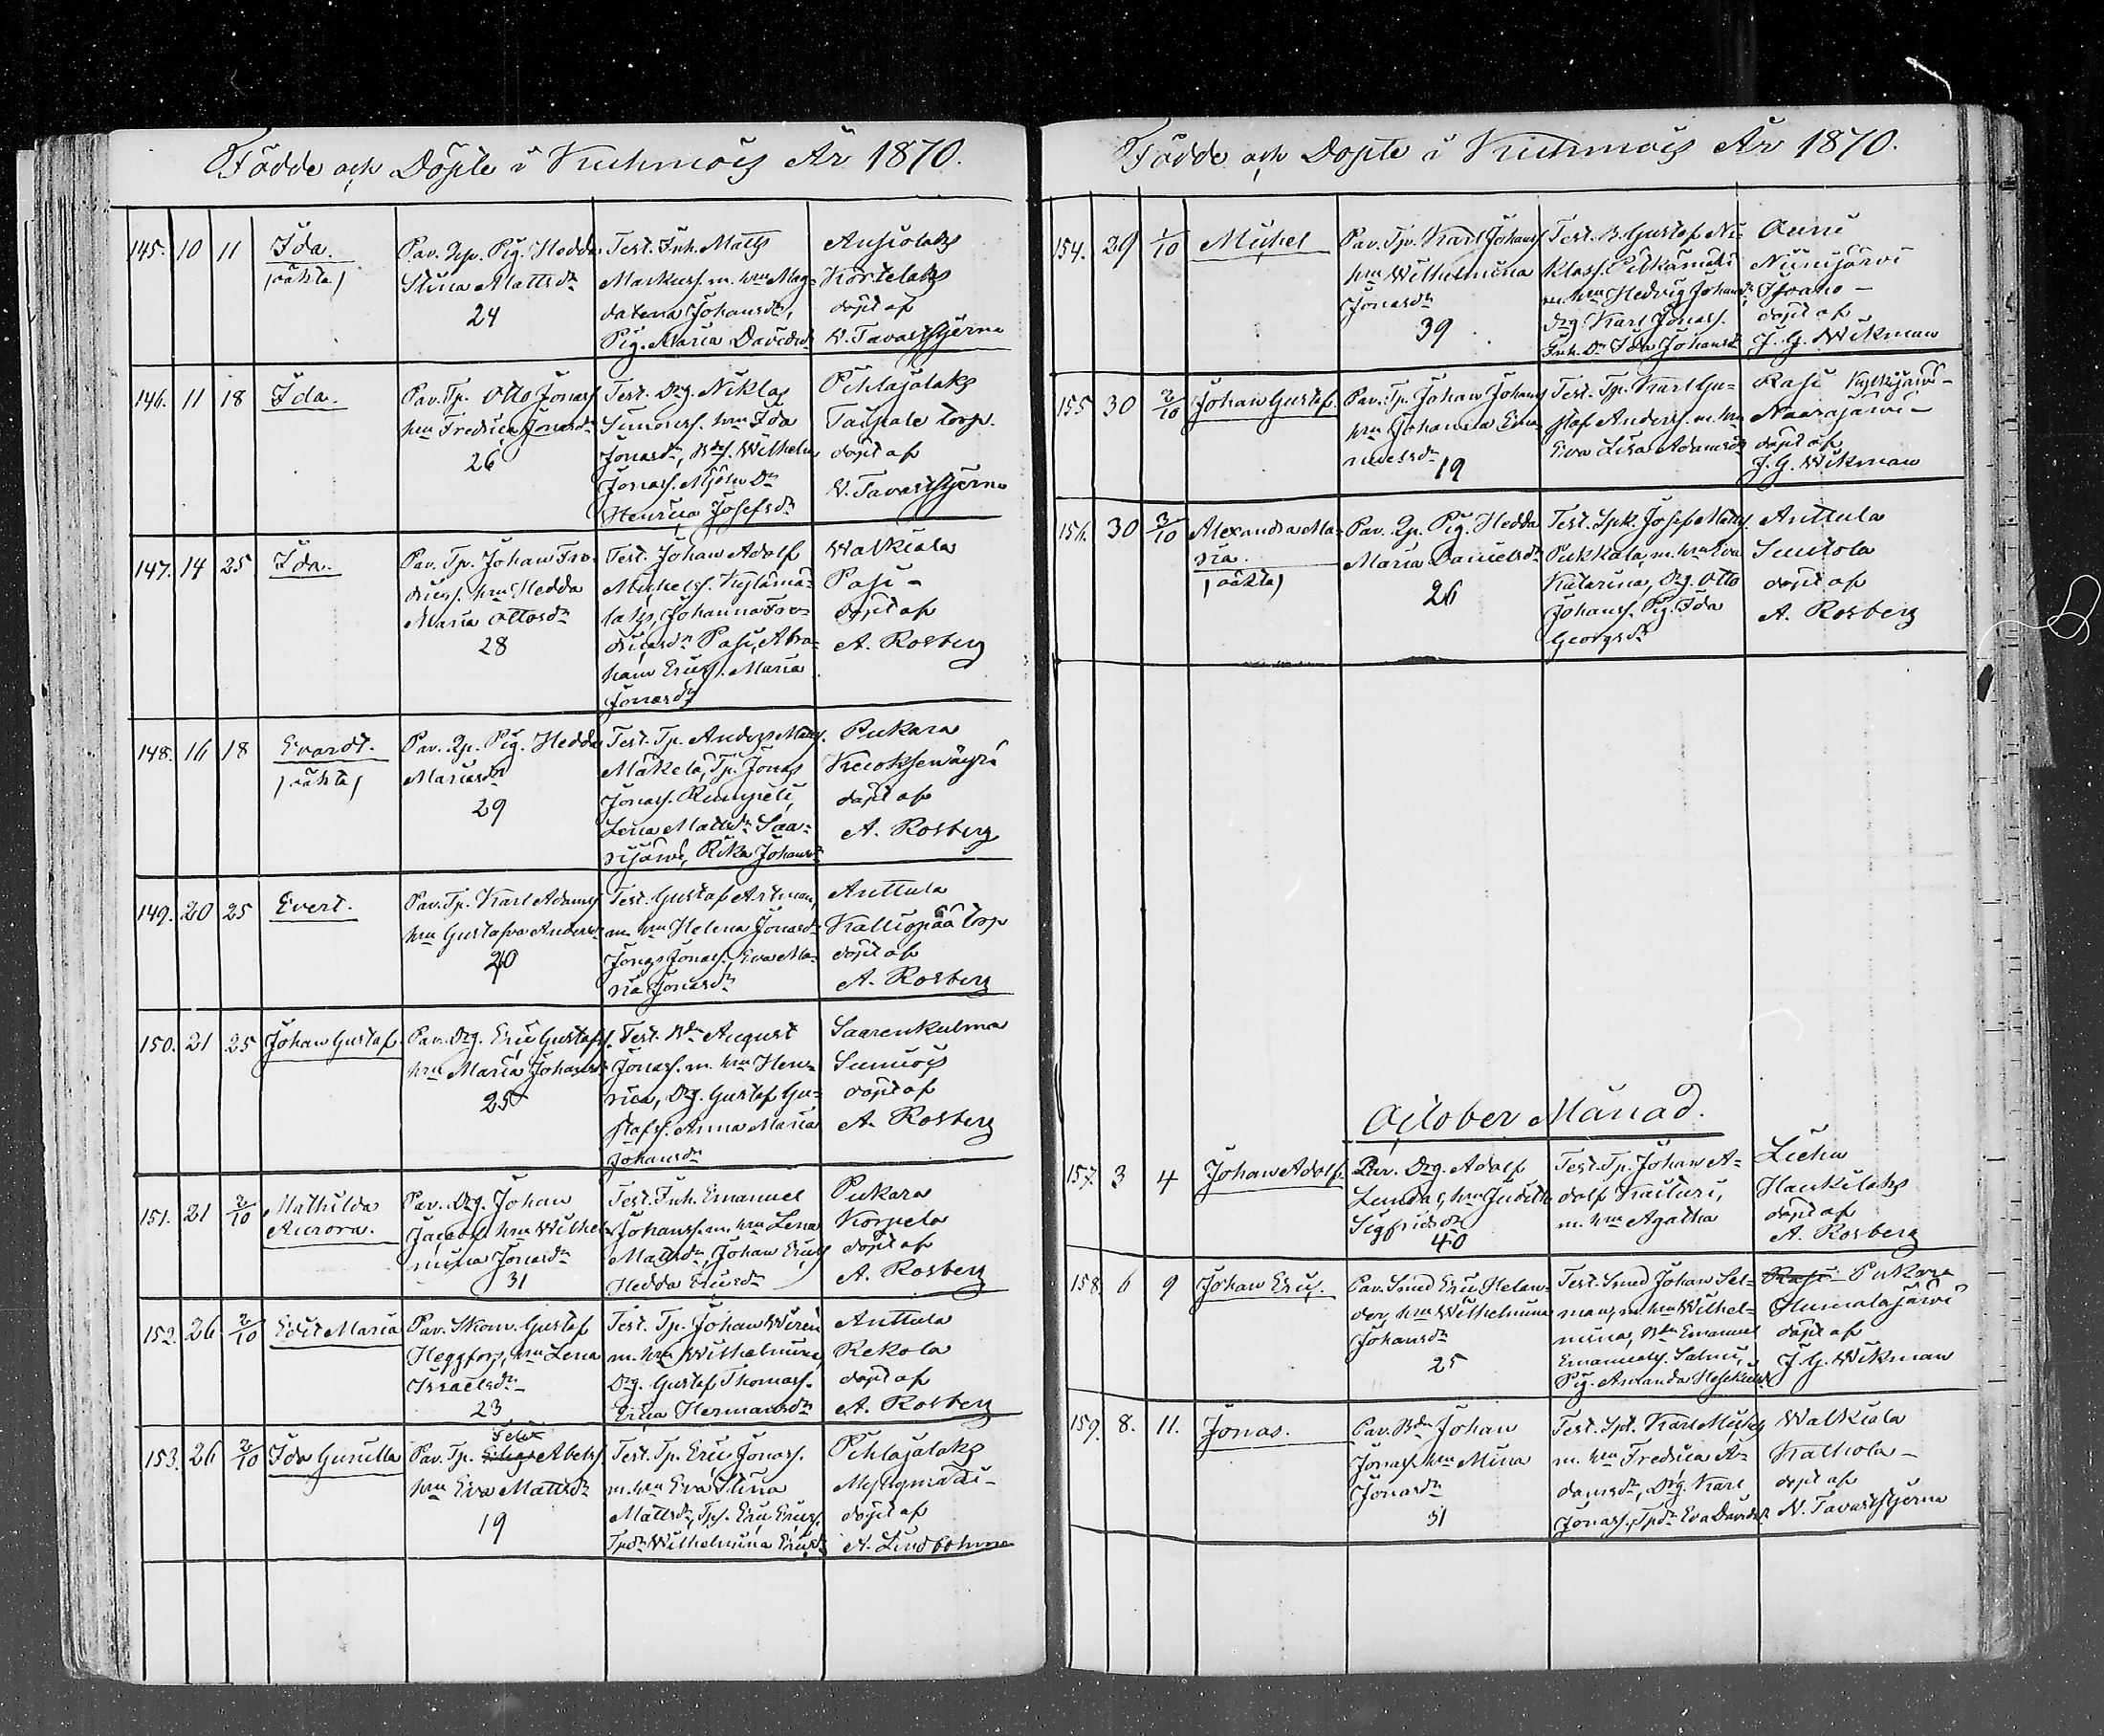 Födde och Döpte i Kuhmois År 1870.
145. 10 11 Ida.
/oäkta/
Pav. Qp. Pig. Hedda
Stina Mattsdr
24
Test. Inh. Matts
Markuss. m. hru Mag-
dalena Johansdr,
Pig. Maria Davidsdr
Ansiolaks
Körtelaks
döpt af
V. Tavaststjerna
146. 11 18 Ida.
Pav. Tp. Otto Jonass
hru Fredrica Jonasdr
26
Test. Drg. Niklas
Simonss. hru Ida
Jonasdr, Bds. Wilhelm
Jonass. Mjöln. Dr
Henrica Josefsdr
Pihlajalaks
Taipale Torp.
döpt af
V. Tavaststjerna
147. 14 25 Ida.
Pav. Tp. Johan Fre-
drics. hru Hedda
Maria Ottosdr
28
Test. Johan Adolf
Michelss. Kylämä-
laks, Johanna Fre-
dricsdr Pasi, Abra-
ham Erics. Maria
Jonasdr
Walkiala
Pasi -
döpt af
A. Rosberg
148. 16 18 Evardt.
/oäkta/
Pav. Qp. Pig. Hedda
Mariasdr
29
Test. Tp. Anders Matts.
Mäkelä, Tp. Jonas
Jonass. Rumpeli,
Lena Mattsdr Saa-
rijärvi, Rika Johansdr
Pukara
Kuoksenäyri
döpt af
A. Rosberg
149. 20 25 Evert.
Pav. Tp. Karl Adams
hru Gustafva Andersdr
20
Test. Gustaf Artman,
m. hru Helena Jonasdr
Jonas Jonass. Eva Ma-
ria Jonasdr
Anttula
Kalliopää Torp
döpt af
A. Rosberg
150. 21 25 Johan Gustaf.
Pav. Drg. Eric Gustafss.
hru Maria Johansdr
25
Test. Bdn August
Jonass. m. hru Hen-
rica, Drg. Gustaf Gu-
stafss. Anna Maria
Johansdr
Saarenkulma
Suniois
döpt af
A. Rosberg
151. 21 2/10 Mathilda
Aurora.
Pav. Drg. Johan
Jacobs. hru Wilhel-
mina Jonasdr
31
Test. Inh. Emanuel
Johanss. m. hru Lena
Mattsdr, Johan Erics
Hedda Ericsdr
Pukara
Korpela
döpt af
A. Rosberg
152. 26 2/10 Edit Maria
Pav. Skom. Gustaf
Heggfors, hru Lena
Israelsdr
23
Test. Tp. Johan Wirén
m. hru Wilhelmina,
Drg. Gustaf Thomass.
Erica Hermansdr
Anttula
Rekola
döpt af
A. Rosberg
153. 26 2/10 Ida Gunilla
Felix
Pav. Tp. Abels.
hru Eva Mattsdr
19
Test. Tp. Eric Jonass.
m. hru Eva Stina
Mattsdr, Tps. Eric Erics.
Tpdr Wilhelmina Ericsdr
Pihlajalaks
Myllymäki -
döpt af
A. Lindbohm
Födde och Döpte i Kuhmois År 1870.
154. 29 1/10 Michel
Pav. Tp. Karl Johanss
hru Wilhelmina
Jonasdr
39
Test. B. Gustaf Ni-
klass. Pitkämäki
m. hru Hedvig Johansdr,
Drg. Karl Jonass.
Inh. Dr Ida Johansdr
Nimijärvi
döpt af
J. G. Wikman
155. 30 2/10 Johan Gustaf.
Pav. Tp. Johan Johans
hru Johanna Ema-
nuelsdr
19
Test. Tp. Karl Gu-
staf Anderss. m. hru
Eva Lisa Adamsdr
Rasi Kylkijärvi -
Naarajärvi -
döpt af
J. G. Wikman
156. 30 3/10 Alexandra Ma-
ria.
/oäkta/
Pav. Qp. Pig. Hedda
Maria Danielsdr
26
Test. Spk. Josef Matts
Pukkala, m. hru Eva
Katarina, Drg. Otto
Johanss. Pig. Ida
Georgsdr
Anttula
Suutola
döpt af
A. Rosberg
October Månad.
157. 3 4 Johan Adolf.
Pav. Drg. Adolf
Lundal, hru Judith
Sigfridsdr
40
Test. Tp. Johan A-
dolf Kaituri,
m. hru Agatha
Liehu
Haukilaks
döpt af
A. Rosberg
158. 6 9 Johan Eric.
Pav. Smed Eric Helan-
der, hru Wilhelmina
Johansdr
25
Test. Smed Johan Sel-
man, m. hru Wilhel-
mina, Bdn Emanuel
Emanuels. Salmi,
Pig. Amanda Hesekielsdr
Rasi Pukara
Humalajärvi
döpt af
J. G. Wikman
159. 8. 11. Jonas.
Pav. Bdn Johan
Jonass. hru Mina
Jonasdr
31
Test. Spt. Karl Michels
m. hru Fredrica A-
damsdr, Drg. Karl
Jonass. Tpdr Eva Davidsdr
Walkiala
Kalhola -
döpt af
V. Tavaststjerna